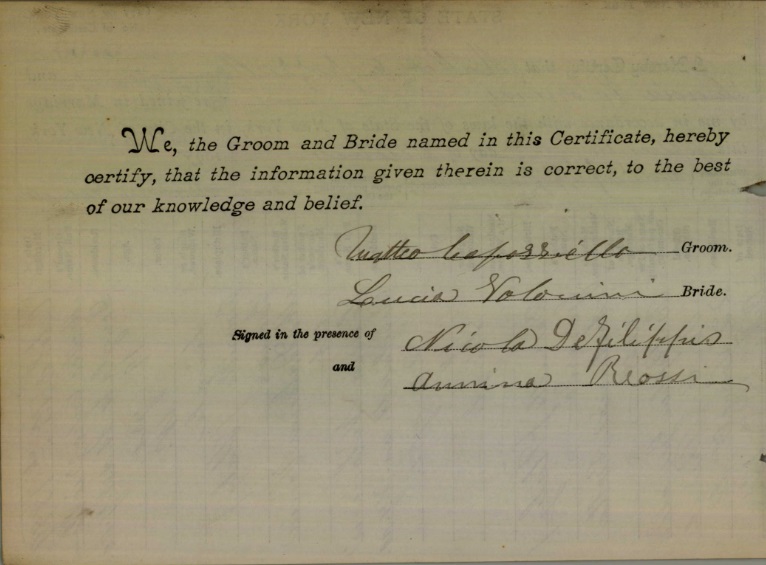 We, the Groom and Bride named in this Certificate, hereby
certify, that the information given therein is correct, to the best
of our knowledge and belief.
Matteo Caporriello Groom.
Lucia Bride.
Signed in the presence of Nicola DeFilippis
and Annina